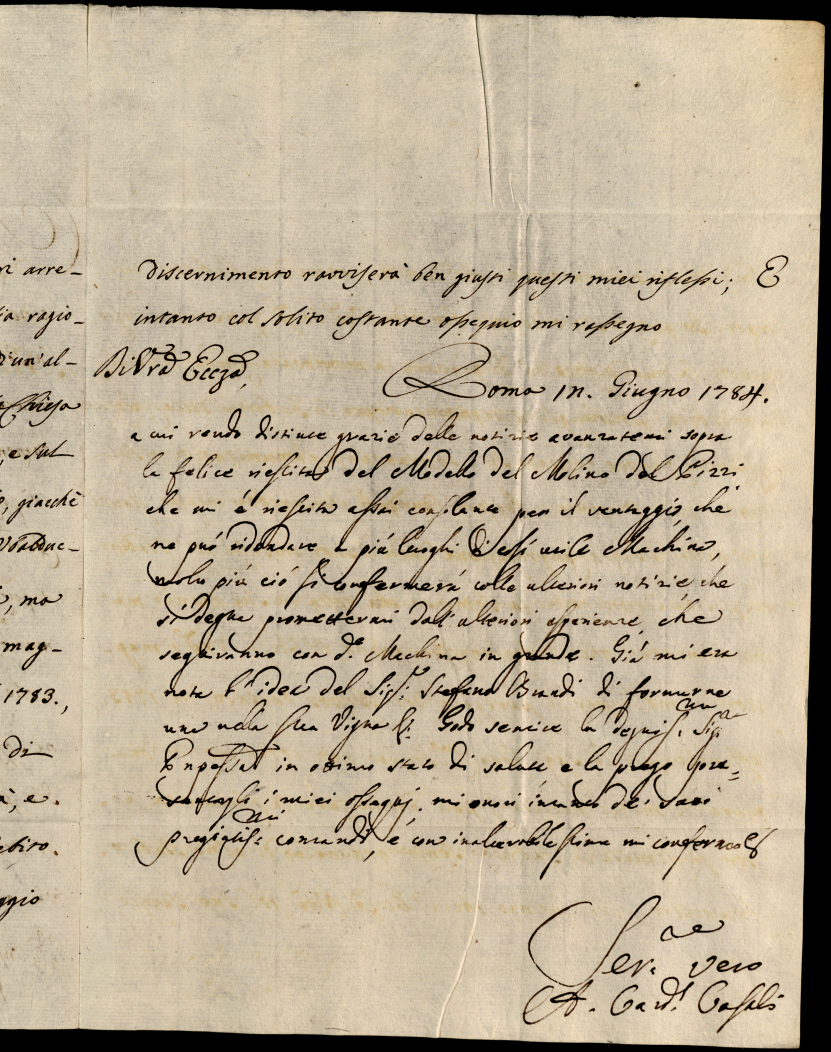 ri arre-
ia ragio-
d'un'al-
Chiesa
, e sul
o, giacchè
, ma
mag-
1783.,
di
à, e.
ebito.
ggio
discernimento ravviserà ben giusti questi miei riflessi; E
intanto col solito costante ossequio mi rassegno
Di V.ra Ecc.za
Roma 1n. Giugno 1784.
a mi rendo distinte grazie delle notizie avanzatemi sopra
la felice riescita del Modello del Molino del Pizzi
che mi é riescita assai consolante per il vantaggio, che
ne può ridondare a più luoghi di così utile Machina,
molto più ciò si confermerà colle ulteriori notizie, che
si degna promettermi dall'ulteriori esperienze, che
seguiranno con d.a Machina in grande. Già mi era
nota l'idea del Sig.r Stefano Brandi di formarne
una nella sua Vigna &. Godo sentire la degnis.ma Sig.ra
in ottimo stato di salute e la prego pre-
sentargli i miei ossequj, mi onori intanto dei suoi
pregiatis.mi comandi, e con inalterabile stima mi confermo &
Ser.e vero
A. Card.l Casali